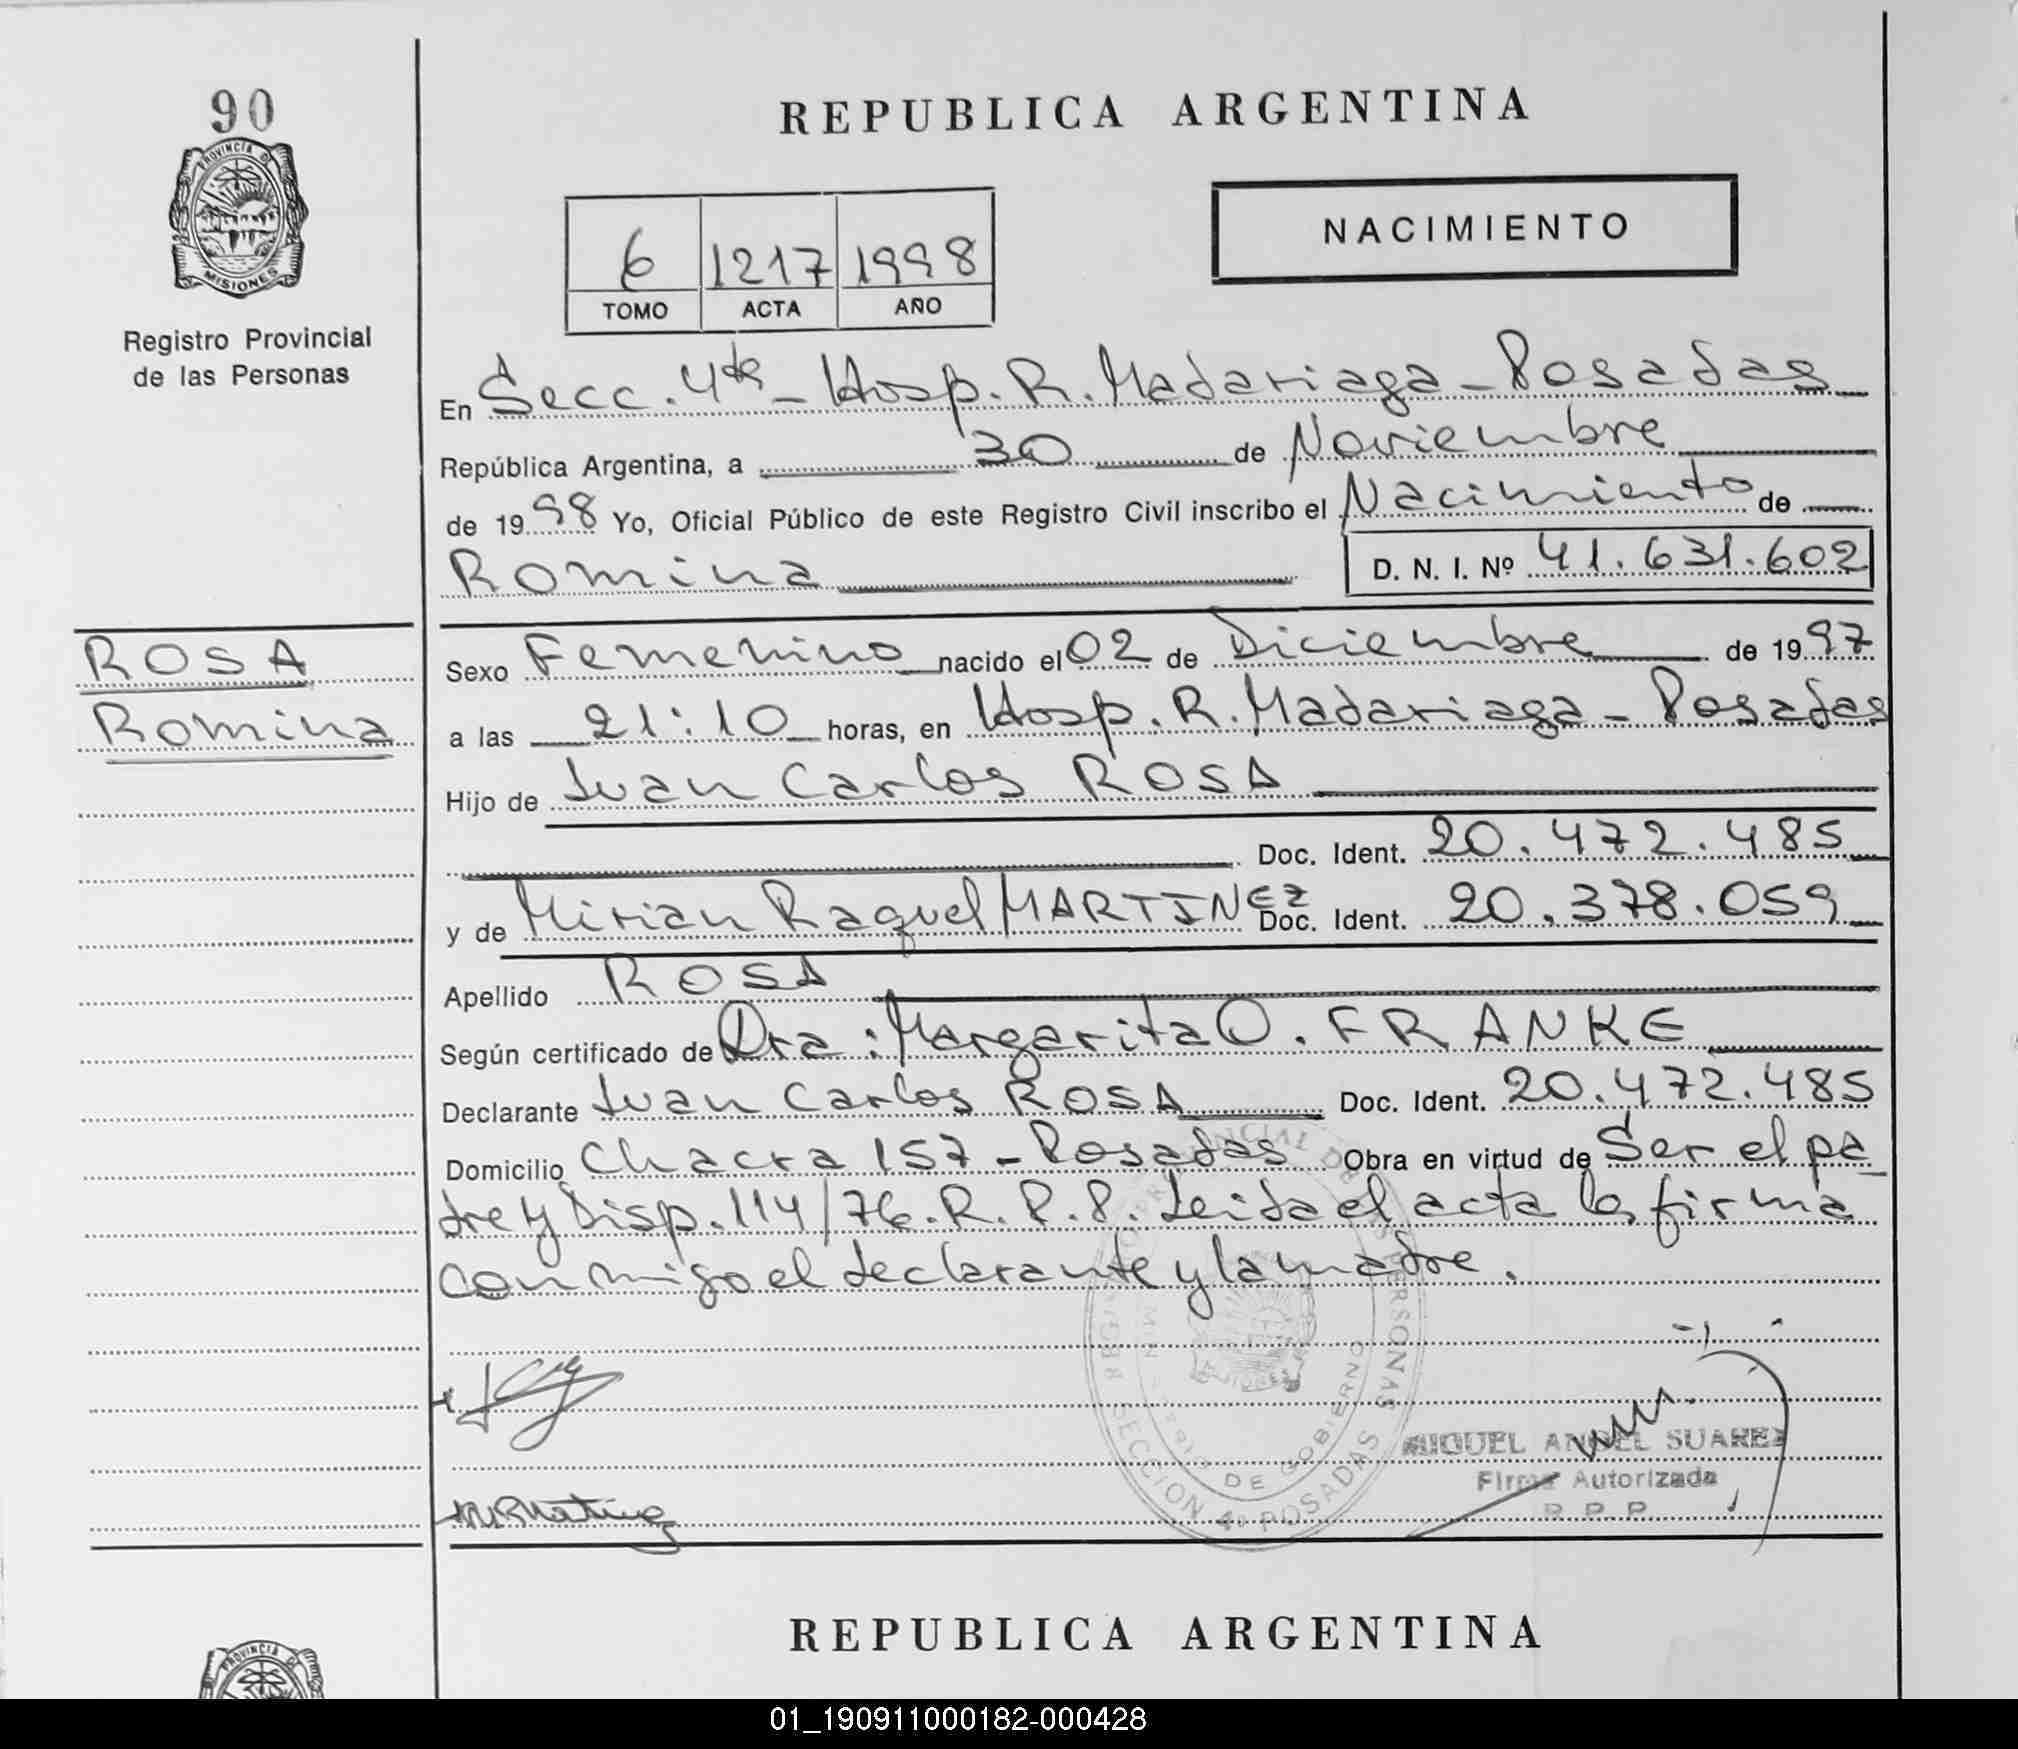 90
PROVINCIA DE
MISIONES
Registro Provincial
de las Personas
REPUBLICA ARGENTINA
6 1217 1998
TOMO ACTA AÑO
NACIMIENTO
En Secc. 4ta - Hosp. R. Madariaga - Posadas
República Argentina, a 30 de Noviembre
de 1998 Yo, Oficial Público de este Registro Civil inscribo el Nacimiento de
Romina D. N. I. Nº 41.631.602
ROSA
Romina
Sexo Femenino nacido el 02 de Diciembre de 1997
a las 21:10 horas, en Hosp. R. Madariaga - Posadas
Hijo de Juan Carlos ROSA
Doc. Ident. 20.472.485
y de Mirian Raquel MARTINEZ Doc. Ident. 20.378.059
Apellido ROSA
Según certificado de Dra: Margarita O. FRANKE
Declarante Juan Carlos ROSA Doc. Ident. 20.472.485
Domicilio Chacra 157 - Posadas Obra en virtud de Ser el pa
dre y Disp. 114/76. R. P. P. Leida el acta la firma
conmigo el declarante y la madre.
PERSONAS
DE GOBIERNO
SECCION 4a POSADAS
MIGUEL ANGEL SUAREZ
Firma Autorizada
R. P. P.
REPUBLICA ARGENTINA
PROVINCIA DE
01_190911000182-000428